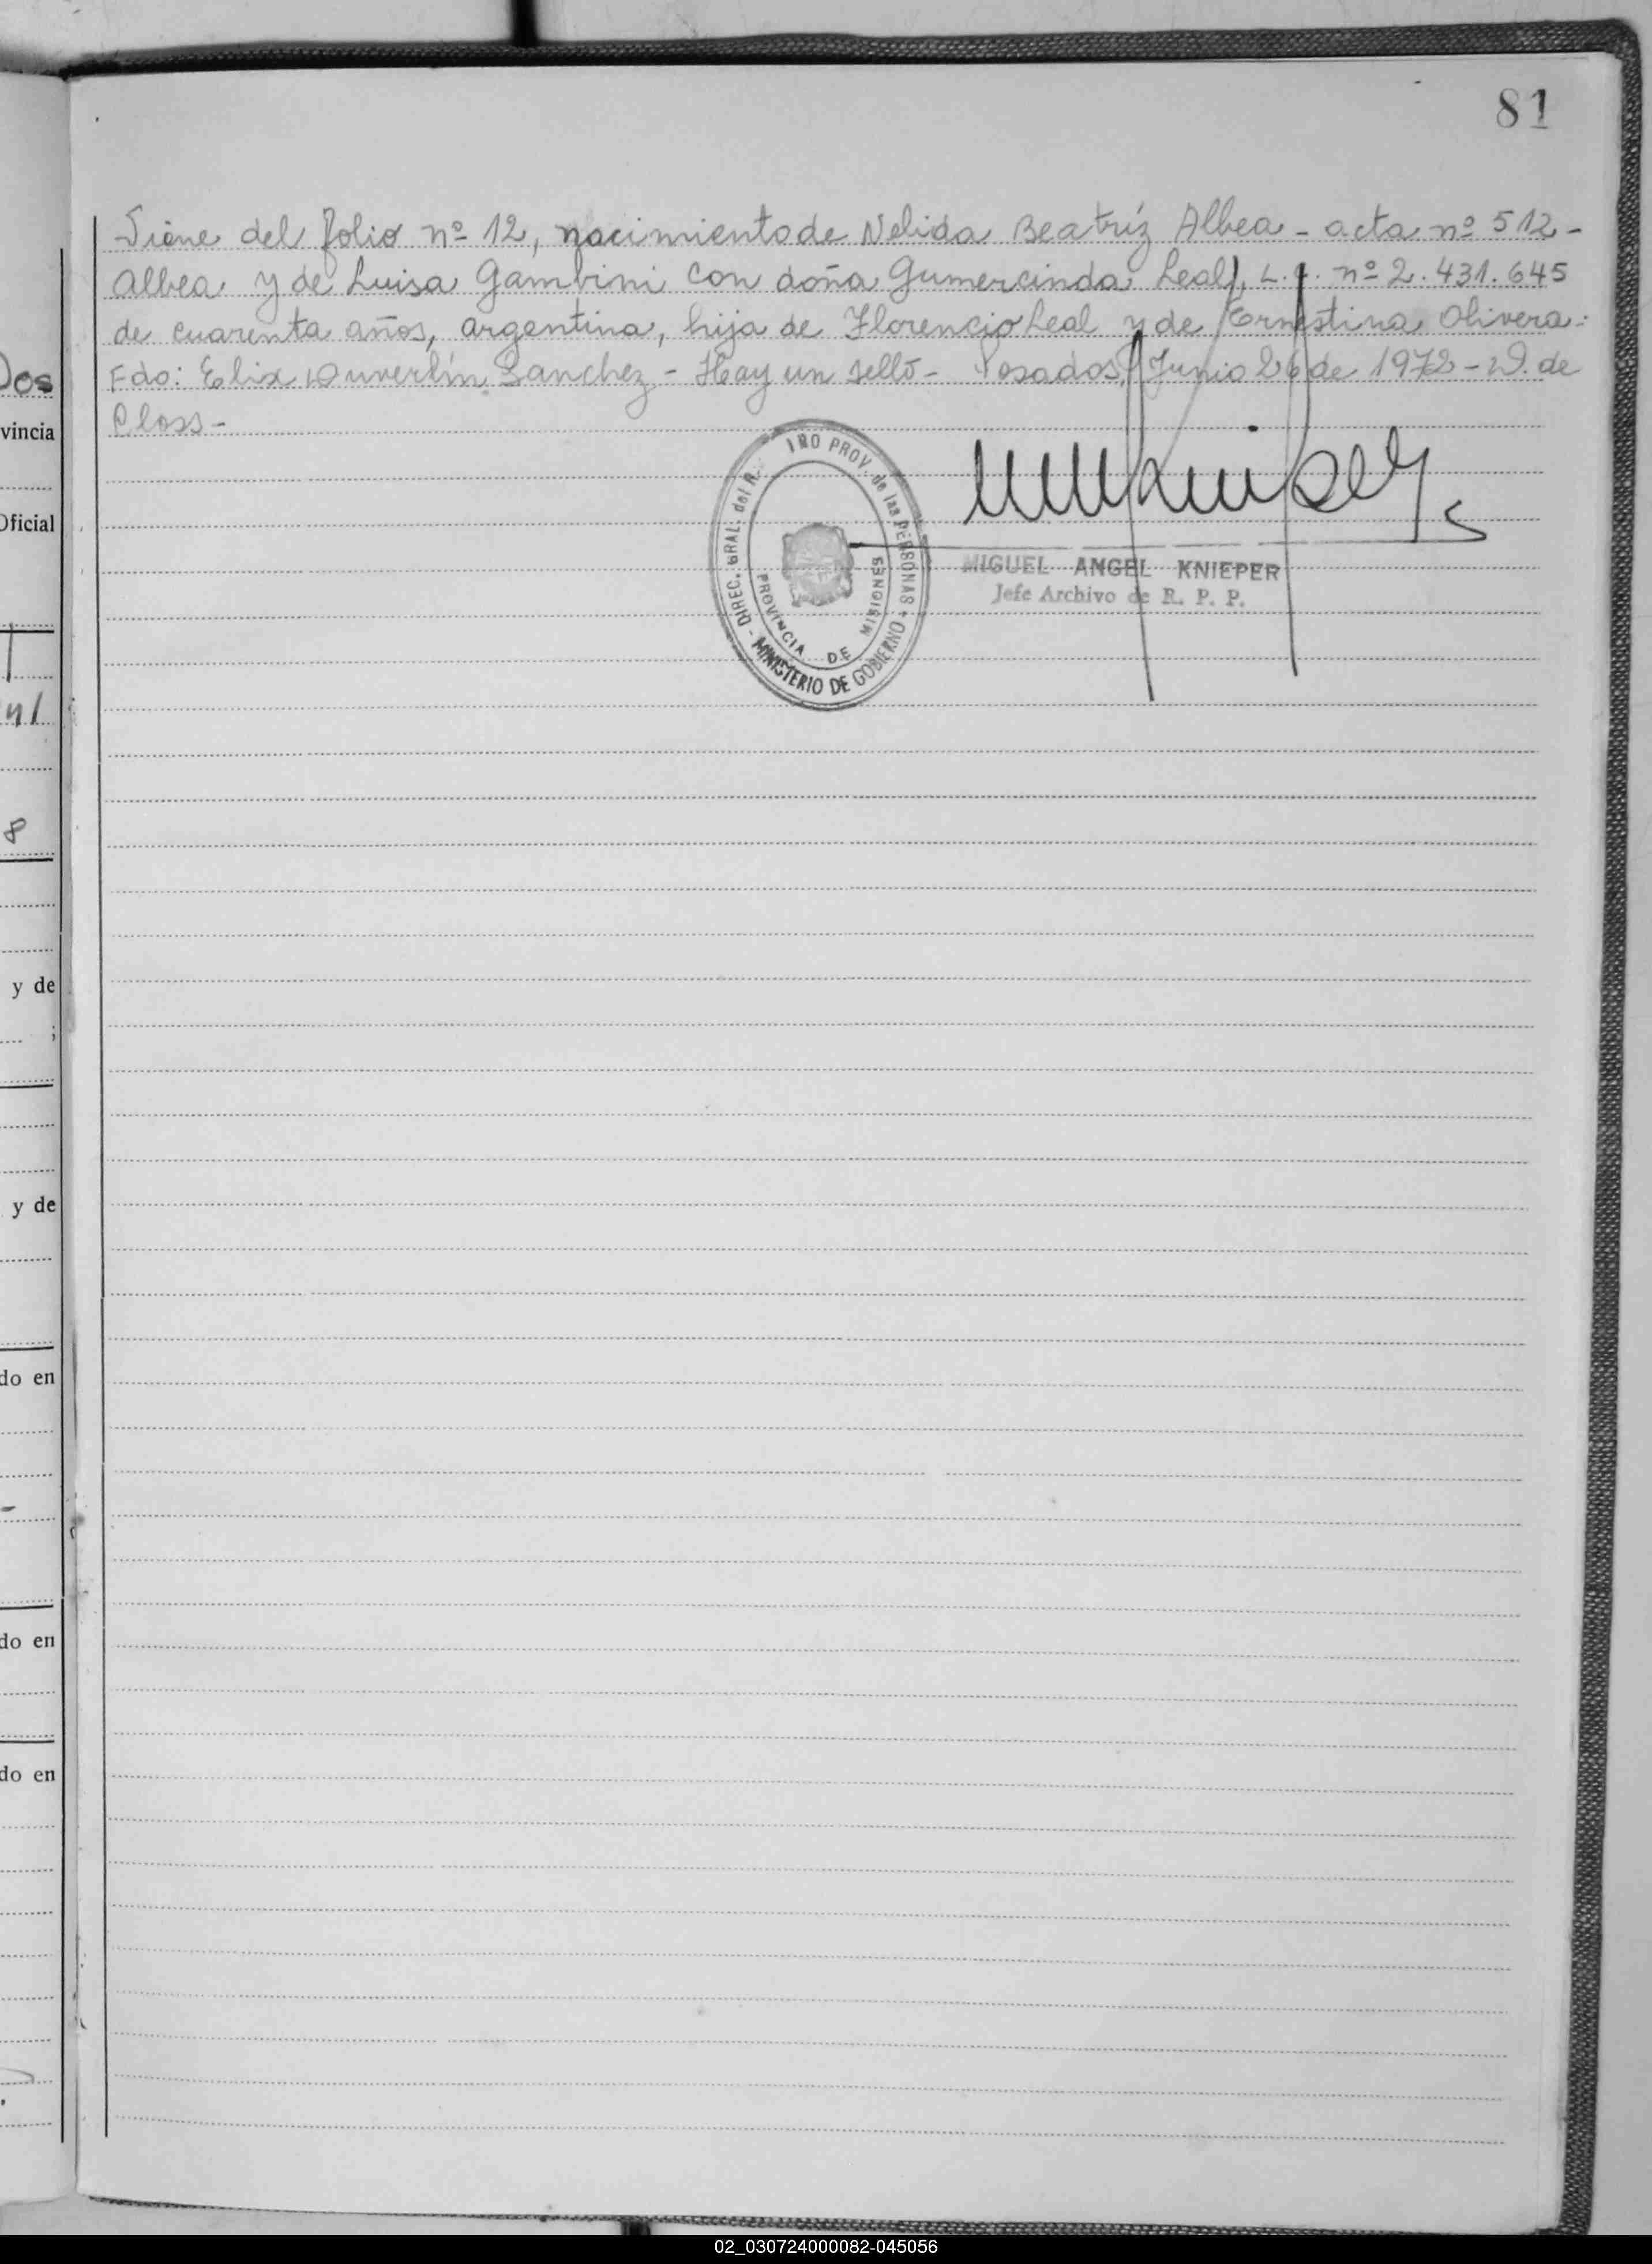 81
Viene del folio nº 12, nacimiento de Nelida Beatríz Albea - acta nº 512 -
Albea y de Luisa Gambini con doña Gumercinda Leal, L.C. nº 2.431.645
de cuarenta años, argentina, hija de Florencio Leal y de Ernestina Olivera.
Fdo: Elix Duverlín Sanchez - Hay un sello - Posadas, Junio 26 de 1972 - W. de
Closs -
DIREC. GRAL. del R. PROV. de las PERSONAS
MINISTERIO DE GOBIERNO
PROVINCIA DE MISIONES
MIGUEL ANGEL KNIEPER
Jefe Archivo de R. P. P.
Dos
vincia
Oficial
41
8
y de
;
y de
do en
do en
do en
02_030724000082-045056